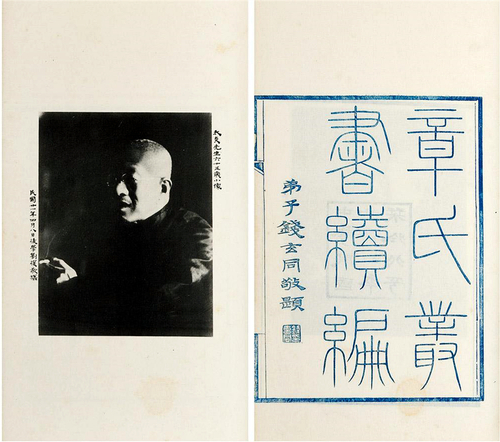 太炎先生六十五歲小像
民國二十一年四月八日後學劉復敬攝
章氏叢
書續編
弟子錢玄同敬題